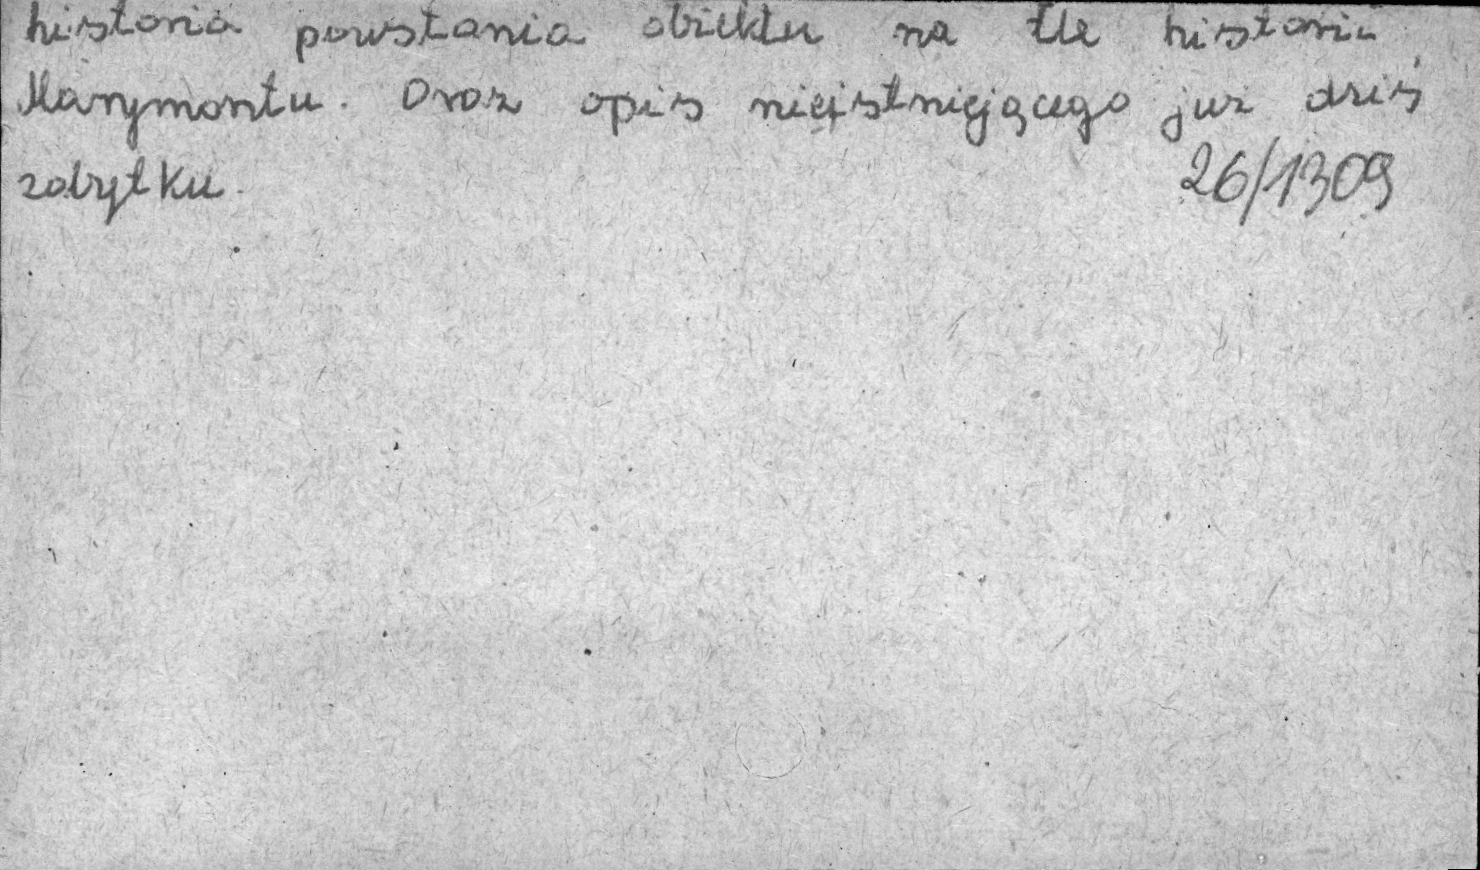 historia powstania obiektu na tle historii
Marymontu. Oraz opis nieistniejącego już dziś
zabytku.
26/1309